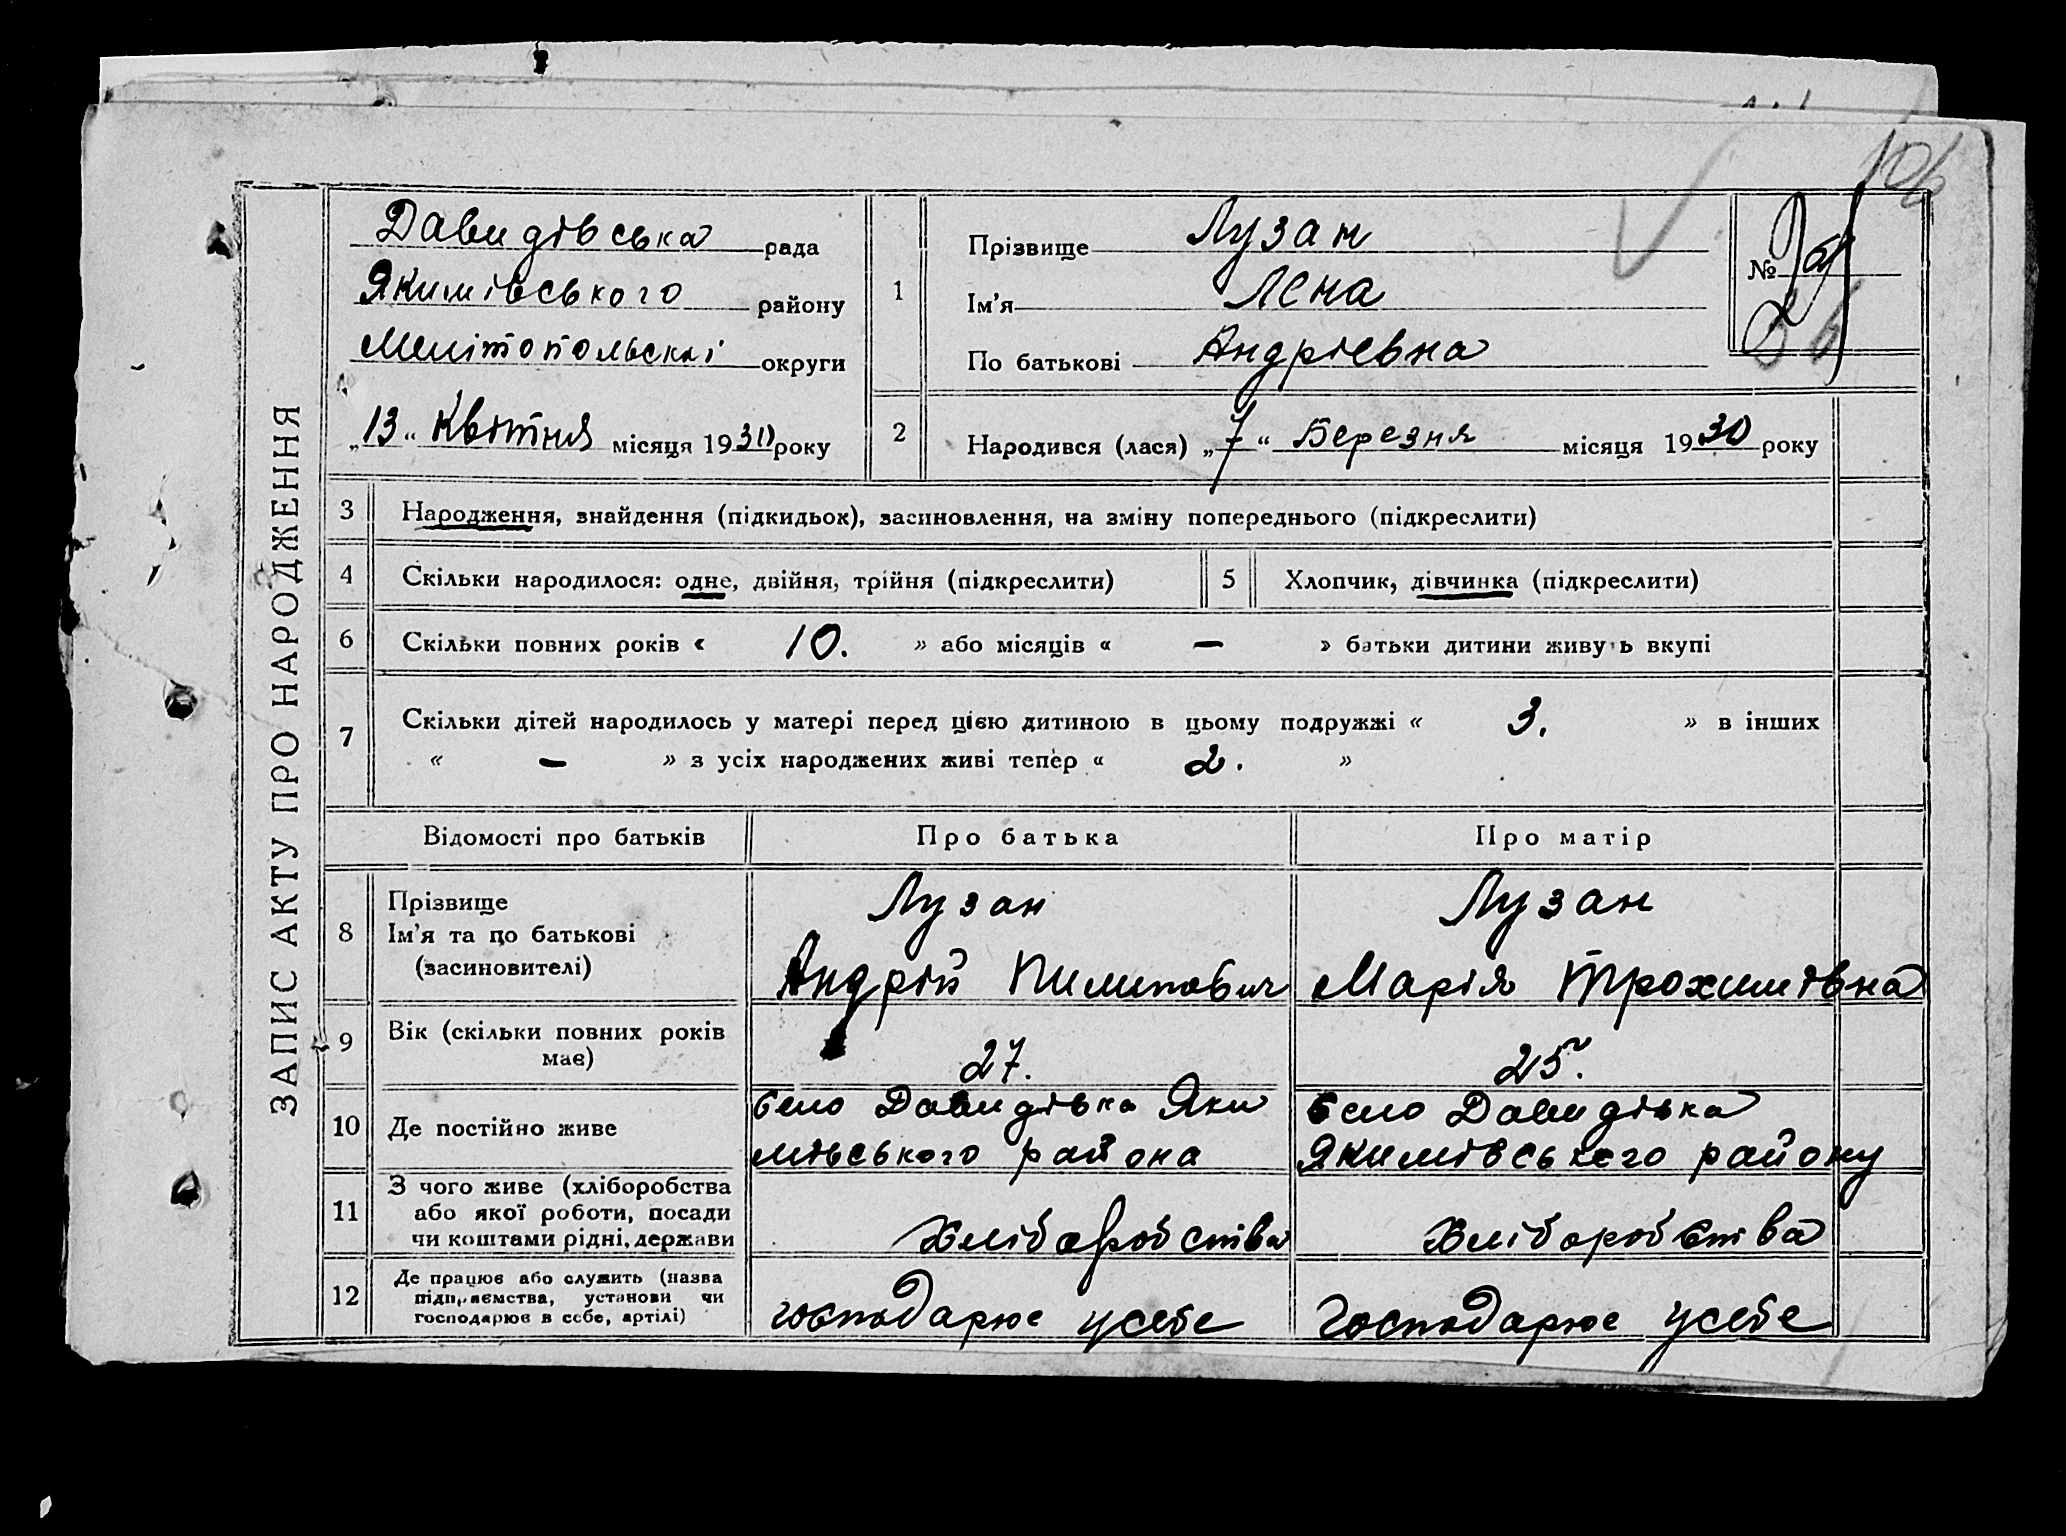 ЗАПИС АКТУ ПРО НАРОДЖЕННЯ
Давидівська рада
Якимівського району
Мелітопольскі округи
„13“ Квітня місяця 1930 року
1
Прізвище Лузан
Ім'я Лєна
По батькові Андріевна
№
2
Народився (лася) „7“ Березня місяця 1930 року
3 Народження, знайдення (підкидьок), засиновлення, на зміну попереднього (підкреслити)
4 Скільки народилося: одне, двійня, трійня (підкреслити)
5 Хлопчик, дівчинка (підкреслити)
6 Скільки повних років « 10. » або місяців « — » батьки дитини живуть вкупі
7 Скільки дітей народилось у матері перед цією дитиною в цьому подружжі « 3. » в інших
« — » з усіх народжених живі тепер « 2. »
Відомості про батьків Про батька Про матір
8 Прізвище
Ім'я та по батькові
(засиновителі)
Лузан
Андрій Пилипович
Лузан
Марія Трохимівна
9 Вік (скільки повних років
має)
27.
25.
10 Де постійно живе
село Давидівка Яки
мівського района
село Давидівка
Якимівського району
11 З чого живе (хліборобства
або якої роботи, посади
чи коштами рідні, держави
Хліборобства
Хліборобства
12 Де працює або служить (назва
підприємства, установи чи
господарює в себе, артілі)
господарює усебе
господарює усебе